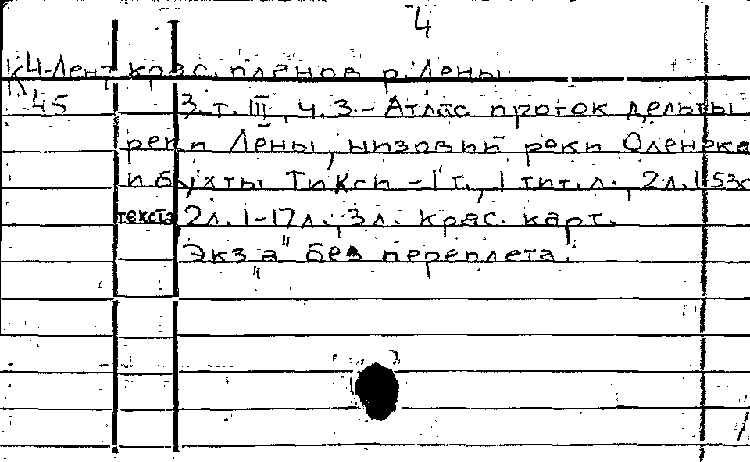 4
К4-Лент крас. пленов р. Лены
45 3. т. III, ч. 3. – Атлас проток дельты
реки Лены, низовий реки Оленека
и бухты Тикси – 1 т., 1 тит. л., 2л.
текста, 2л. 1-17л., 3л. крас. карт.
Экз „а" без переплета.